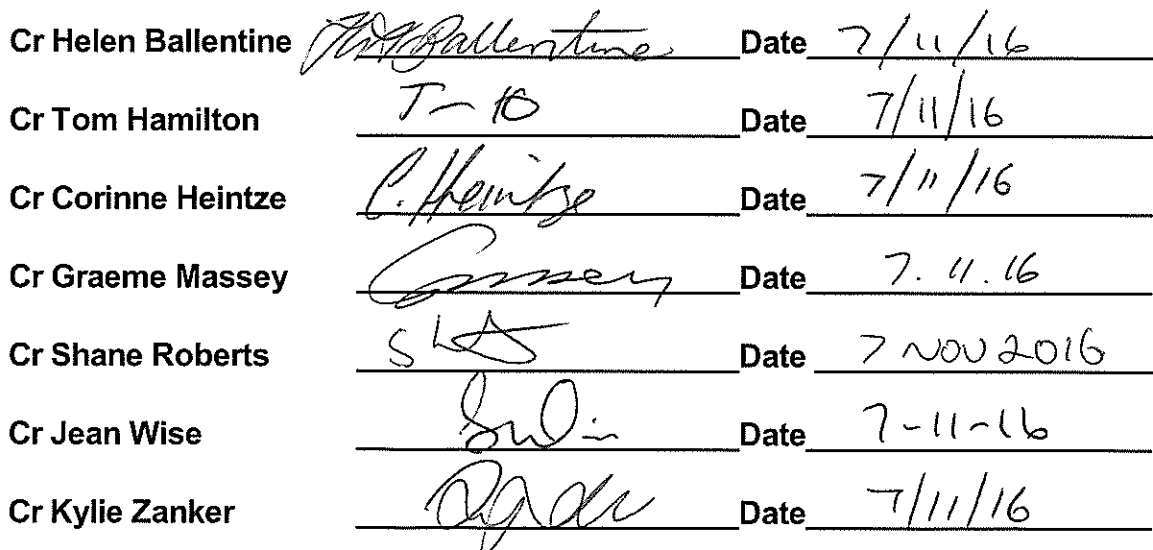 Cr Helen Ballentine Ballentine Date 7/11/16
Cr Tom Hamilton Date 7/11/16
Cr Corinne Heintze C. Heintze Date 7/11/16
Cr Graeme Massey Date 7.11.16
Cr Shane Roberts Date 7 NOV 2016
Cr Jean Wise Date 7-11-16
Cr Kylie Zanker Date 7/11/16